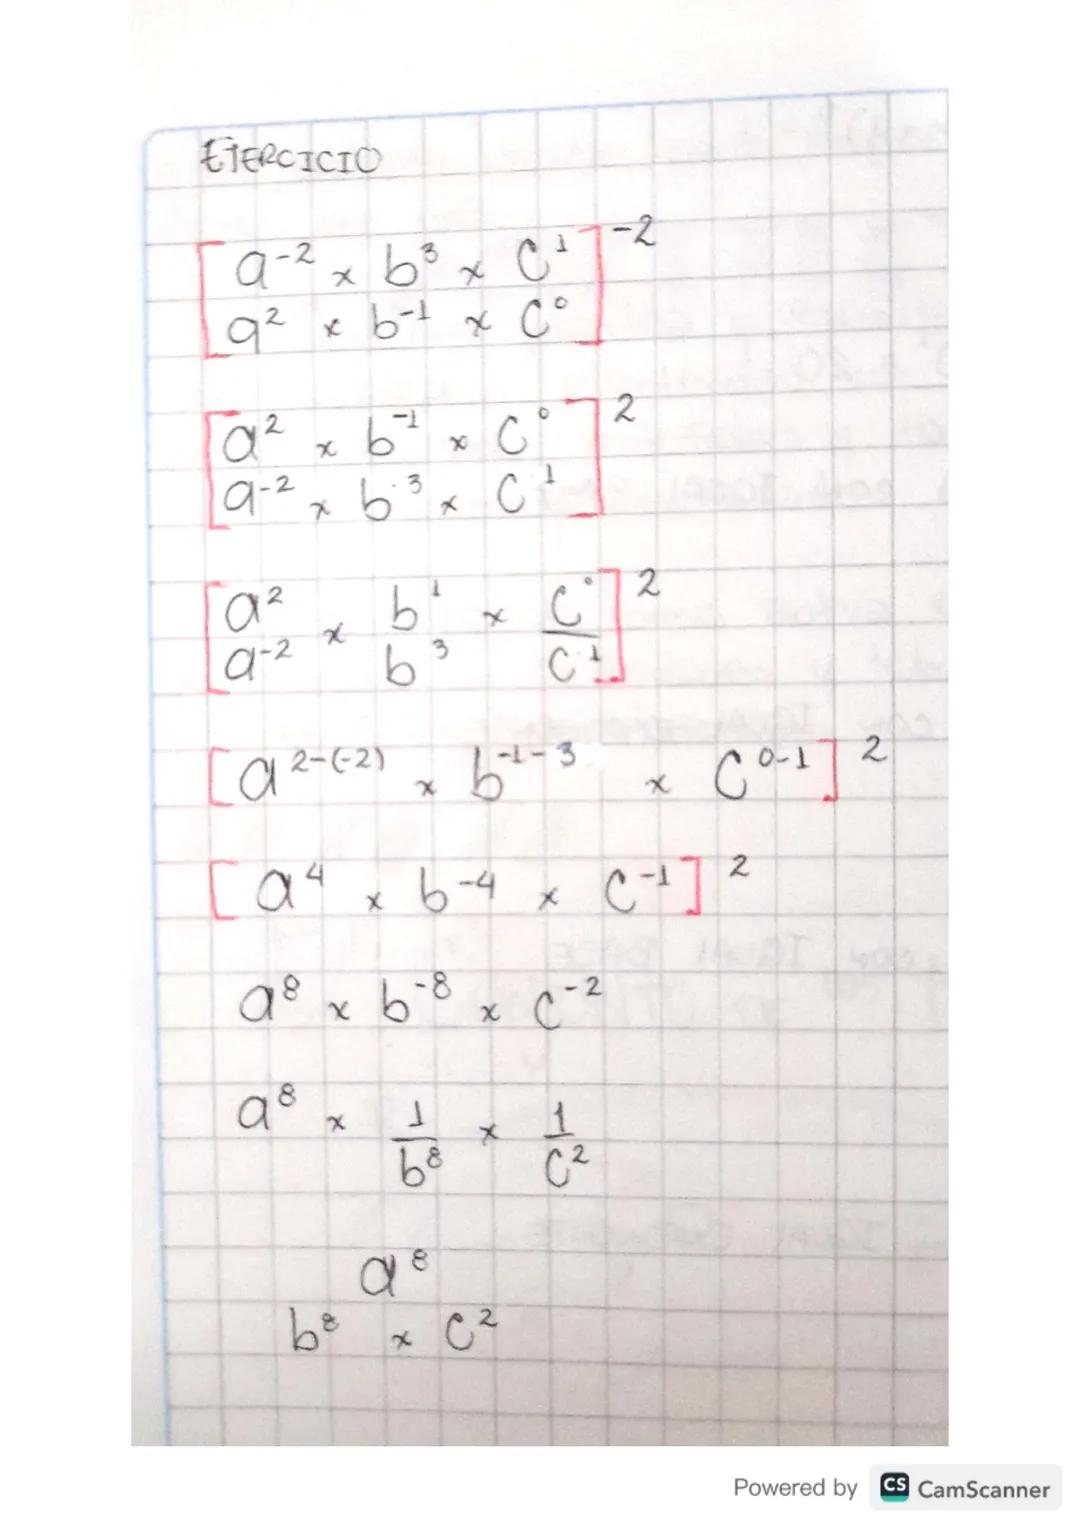 EJERCICIO
[a⁻² × b³ × c¹]⁻²
[a² × b⁻¹ × c⁰]
[a² × b⁻¹ × c⁰]²
[a⁻² × b³ × c¹]
[a² × b¹ × c⁰]²
[a⁻² b³ c¹]
[a²⁻⁽⁻²⁾ × b⁻¹⁻³ × c⁰⁻¹]²
[a⁴ × b⁻⁴ × c⁻¹]²
a⁸ × b⁻⁸ × c⁻²
a⁸ × 1 × 1
b⁸ c²
a⁸
b⁸ × c²
Powered by CS CamScanner